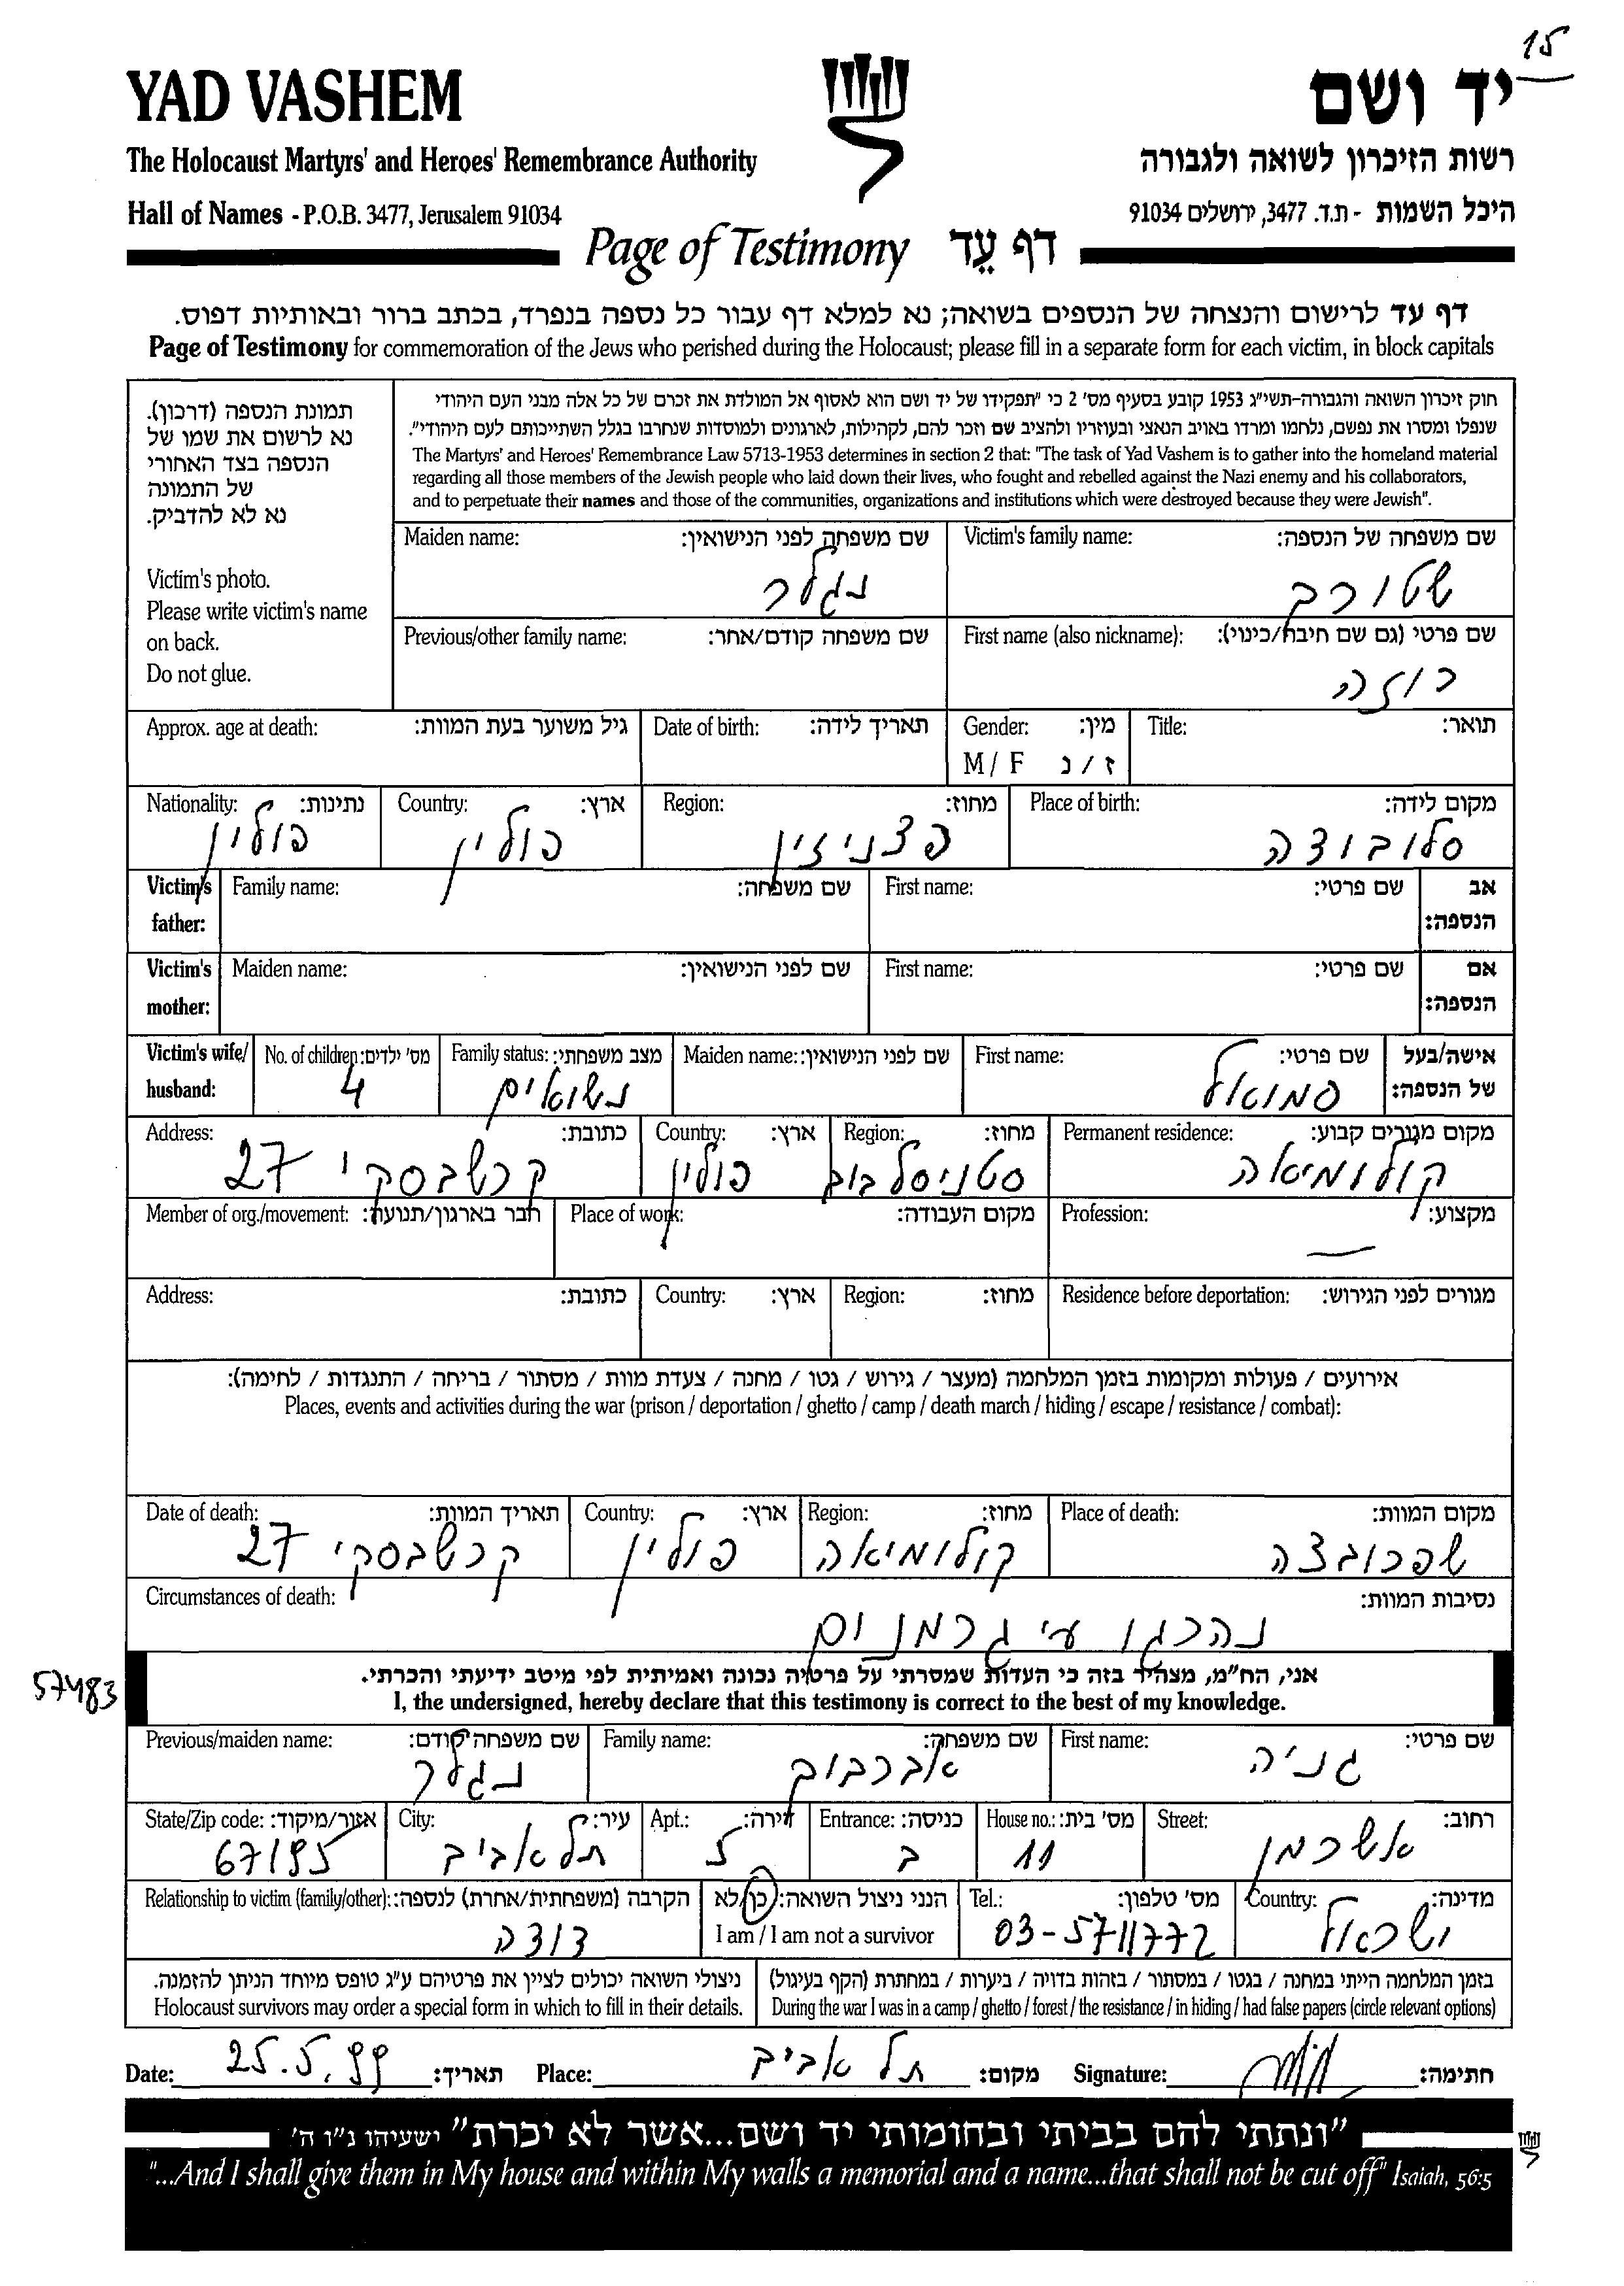 15
YAD VASHEM יד ושם
The Holocaust Martyrs' and Heroes' Remembrance Authority רשות הזיכרון לשואה ולגבורה
Hall of Names - P.O.B. 3477, Jerusalem 91034 היכל השמות - ת.ד. 3477, ירושלים 91034
Page of Testimony דף עֵד
דף עד לרישום והנצחה של הנספים בשואה; נא למלא דף עבור כל נספה בנפרד, בכתב ברור ובאותיות דפוס.
Page of Testimony for commemoration of the Jews who perished during the Holocaust; please fill in a separate form for each victim, in block capitals
חוק זיכרון השואה והגבורה-תשי״ג 1953 קובע בסעיף מס׳ 2 כי ״תפקידו של יד ושם הוא לאסוף אל המולדת את זכרם של כל אלה מבני העם היהודי
שנפלו ומסרו את נפשם, נלחמו ומרדו באויב הנאצי ובעוזריו ולהציב שם וזכר להם, לקהילות, לארגונים ולמוסדות שנחרבו בגלל השתייכותם לעם היהודי״.
The Martyrs' and Heroes' Remembrance Law 5713-1953 determines in section 2 that: "The task of Yad Vashem is to gather into the homeland material
regarding all those members of the Jewish people who laid down their lives, who fought and rebelled against the Nazi enemy and his collaborators,
and to perpetuate their names and those of the communities, organizations and institutions which were destroyed because they were Jewish".
תמונת הנספה (דרכון).
נא לרשום את שמו של
הנספה בצד האחורי
של התמונה
נא לא להדביק.
Victim's photo.
Please write victim's name
on back.
Do not glue.
Victim's family name: שם משפחה של הנספה: Maiden name: שם משפחה לפני הנישואין:
שטורב נגלר
First name (also nickname): שם פרטי (גם שם חיבה/כינוי): Previous/other family name: שם משפחה קודם/אחר:
רוזה
Title: תואר: Gender: מין: Date of birth: תאריך לידה: Approx. age at death: גיל משוער בעת המוות:
M / F ז / נ
Place of birth: מקום לידה: Region: מחוז: Country: ארץ: Nationality: נתינות:
סלובודצה פצניזין פולין פולין
Victim's father: אב הנספה: First name: שם פרטי: Family name: שם משפחה:
Victim's mother: אם הנספה: First name: שם פרטי: Maiden name: שם לפני הנישואין:
Victim's wife/ husband: אישה/בעל של הנספה: First name: שם פרטי: Maiden name: שם לפני הנישואין: Family status: מצב משפחתי: No. of children: מס׳ ילדים:
סמואל נשואים 4
Permanent residence: מקום מגורים קבוע: Region: מחוז: Country: ארץ: Address: כתובת:
קולומיאה סטניסלבוב פולין קרשבסקי 27
Profession: מקצוע: Place of work: מקום העבודה: Member of org./movement: חבר בארגון/תנועה:
—
Residence before deportation: מגורים לפני הגירוש: Region: מחוז: Country: ארץ: Address: כתובת:
אירועים / פעולות ומקומות בזמן המלחמה (מעצר / גירוש / גטו / מחנה / צעדת מוות / מסתור / בריחה / התנגדות / לחימה):
Places, events and activities during the war (prison / deportation / ghetto / camp / death march / hiding / escape / resistance / combat):
Place of death: מקום המוות: Region: מחוז: Country: ארץ: Date of death: תאריך המוות:
שפרובצה קולומיאה פולין קרשבסקי 27
Circumstances of death: נסיבות המוות:
נהרגו ע״י גרמנים
אני, הח״מ, מצהיר בזה כי העדות שמסרתי על פרטיה נכונה ואמיתית לפי מיטב ידיעתי והכרתי.
I, the undersigned, hereby declare that this testimony is correct to the best of my knowledge.
57483
First name: שם פרטי: Family name: שם משפחה: Previous/maiden name: שם משפחה קודם:
גניה אברבוב נגלר
Street: רחוב: House no.: מס׳ בית: Entrance: כניסה: Apt.: דירה: City: עיר: State/Zip code: אזור/מיקוד:
אשרמן 11 ב 5 תל אביב 67195
Country: מדינה: Tel.: מס׳ טלפון: הנני ניצול השואה: כן/לא Relationship to victim (family/other): הקרבה (משפחתית/אחרת) לנספה:
ישראל 03-5711772 I am / I am not a survivor דודה
בזמן המלחמה הייתי במחנה / בגטו / במסתור / בזהות בדויה / ביערות / במחתרת (הקף בעיגול) ניצולי השואה יכולים לציין את פרטיהם ע״ג טופס מיוחד הניתן להזמנה.
During the war I was in a camp / ghetto / forest / the resistance / in hiding / had false papers (circle relevant options) Holocaust survivors may order a special form in which to fill in their details.
Date: 25.5.99 תאריך: Place: תל אביב מקום: Signature: חתימה:
״ונתתי להם בביתי ובחומותי יד ושם...אשר לא יכרת״ ישעיהו נ״ו ה׳
"...And I shall give them in My house and within My walls a memorial and a name...that shall not be cut off" Isaiah, 56:5